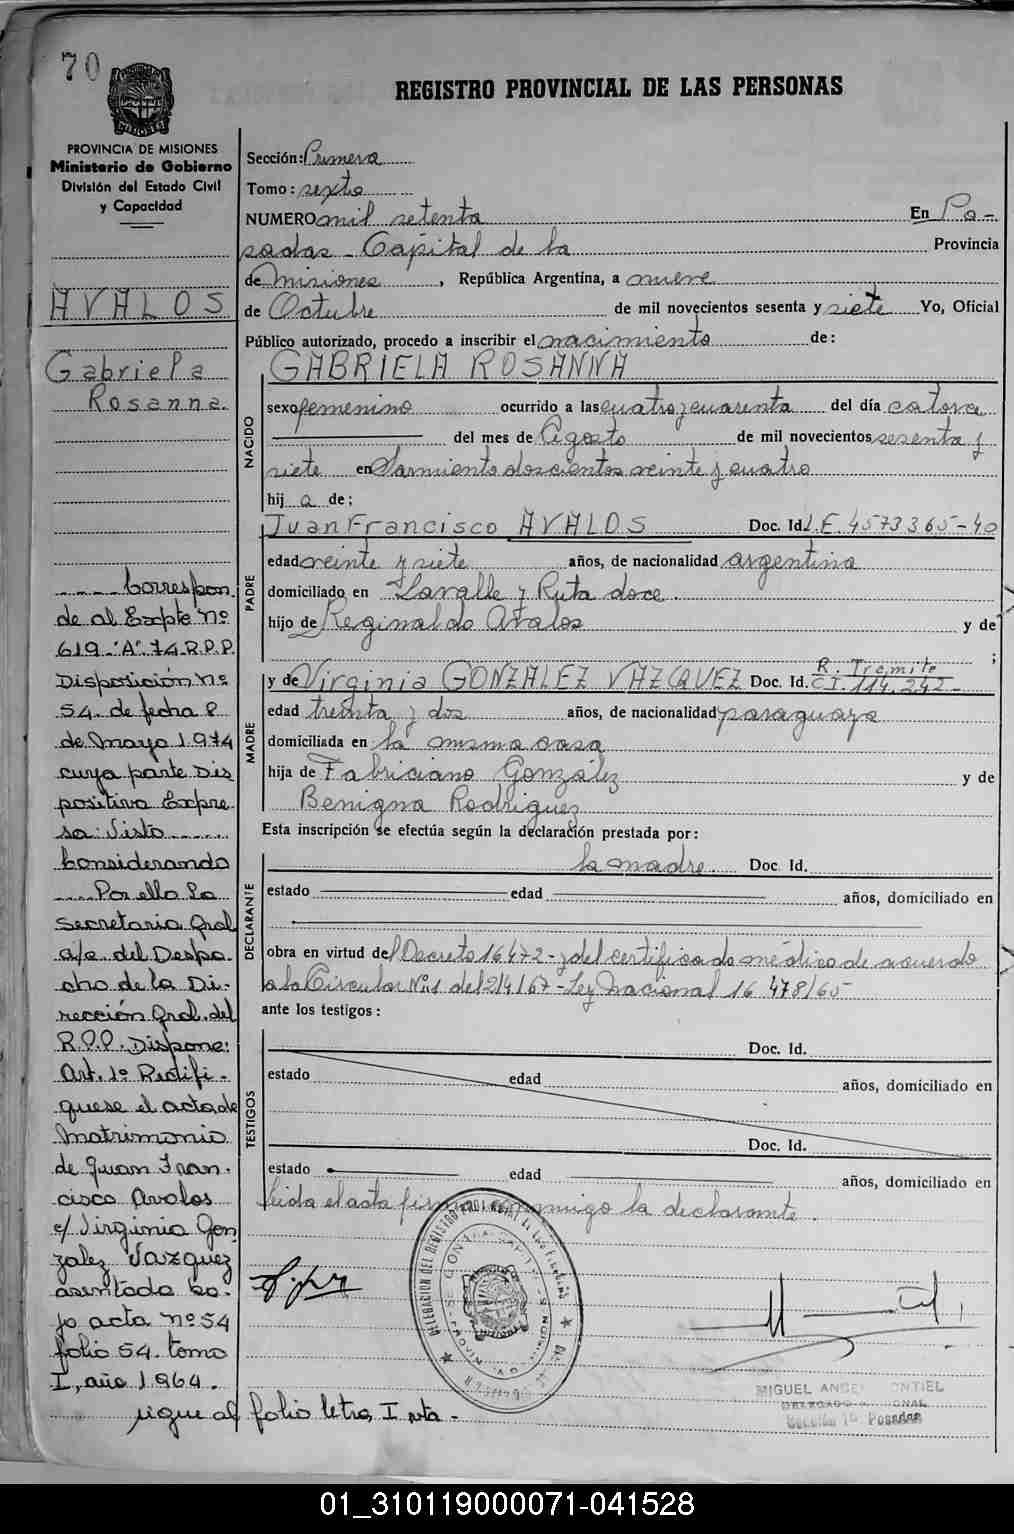 70
REGISTRO PROVINCIAL DE LAS PERSONAS
PROVINCIA DE MISIONES
Ministerio de Gobierno
División del Estado Civil
y Capacidad
AVALOS
Gabriela
Rosanna.
Correspon
de al Expte Nº
619 "A" 74-R.P.P.
Disposición Nº
54. de fecha 8
de Mayo 1974
cuya parte Dis
positiva Expre
sa: Visto
Considerando
Por ello La
Secretaria Gral
a/c del Despa
cho de la Di-
rección Gral. del
R.P.P. Dispone:
Art. 1º Rectifi-
quese el acta de
Matrimonio
de Juan Fran-
cisco Avalos
c/ Virginia Gon
zalez Vazquez
asentada ba-
jo acta nº 54
folio 54. tomo
I, año 1964.
sigue al folio letra I nta.
Sección: Primera
Tomo: sexto
NUMERO mil setenta En Po-
sadas - Capital de la Provincia
de Misiones, República Argentina, a nueve
de Octubre de mil novecientos sesenta y siete Yo, Oficial
Público autorizado, procedo a inscribir el nacimiento de:
NACIDO
GABRIELA ROSANNA
sexo femenino ocurrido a las cuatro y cuarenta del día catorce
del mes de Agosto de mil novecientos sesenta y
siete en Sarmiento doscientos veinte y cuatro
hij a de:
PADRE
Juan Francisco AVALOS Doc. Id. L.E. 4573365-40
edad veinte y siete años, de nacionalidad argentina
domiciliado en Lavalle y Ruta doce.
hijo de Reginaldo Avalos y de
;
MADRE
y de Virginia GONZALEZ VAZCQUEZ Doc. Id. R. Tramite
C.I. 114.242-
edad treinta y dos años, de nacionalidad paraguaya
domiciliada en la misma casa
hija de Fabriciano González y de
Benigna Rodriguez
Esta inscripción se efectúa según la declaración prestada por:
DECLARANTE
la madre. Doc. Id.
estado edad años, domiciliado en
obra en virtud del Decreto 16472- y del certificado médico de acuerdo
a la Circular Nº1 del 2/4/67 - Ley Nacional 16 478/65
ante los testigos:
TESTIGOS
Doc. Id.
estado edad años, domiciliado en
Doc. Id.
estado edad años, domiciliado en
Leida el acta firma conmigo la declarante.
DELEGACION DEL REGISTRO PROVINCIAL DE LAS PERSONAS
MIGUEL ANGEL
DELEGADO
Sección 1ª Posadas
01_310119000071-041528